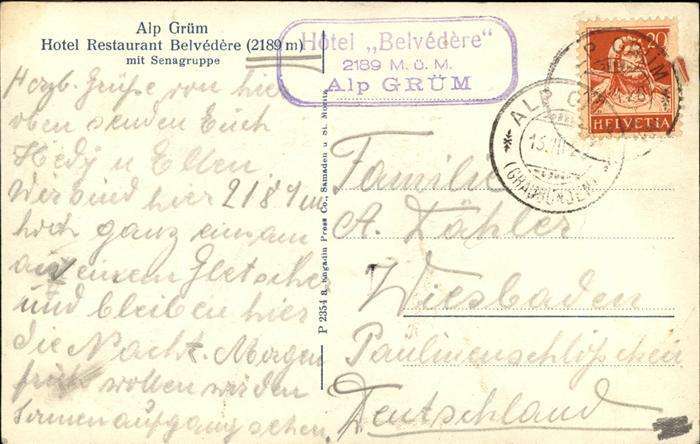 Alp Grüm
Hotel Restaurant Belvédère (2189 m)
mit Senagruppe
Hôtel „Belvédère“
2189 M. ü. M.
Alp GRÜM
20
HELVETIA
ALP
13. III.
(GRAUBÜNDEN)
Herzl. Grüße von hier
oben senden Euch
Hedy u Eltern
Wir sind hier 2189 m
hoch ganz einsam
an einem Gletscher
und bleiben hier
die Nacht. Morgen
früh wollen wir den
Sonnenaufgang sehen.
P 2354 S. Engadin Press Co., Samaden u. St. Moritz
Familie
A. Zähler
Wiesbaden
Paulinenschlößchen
Deutschland